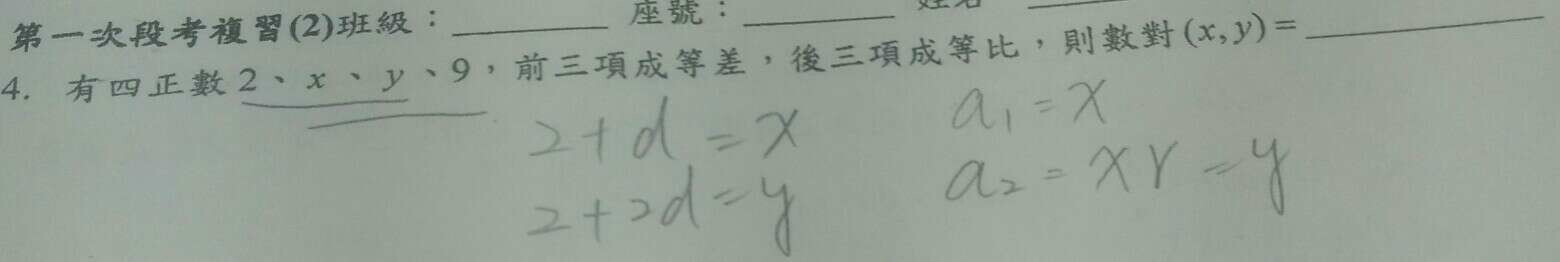 第一次段考複習(2)班級：________ 座號：________
4. 有四正數 2、x、y、9，前三項成等差，後三項成等比，則數對(x, y)=________
2+d=x
2+2d=y
a₁=x
a₂=xr=y